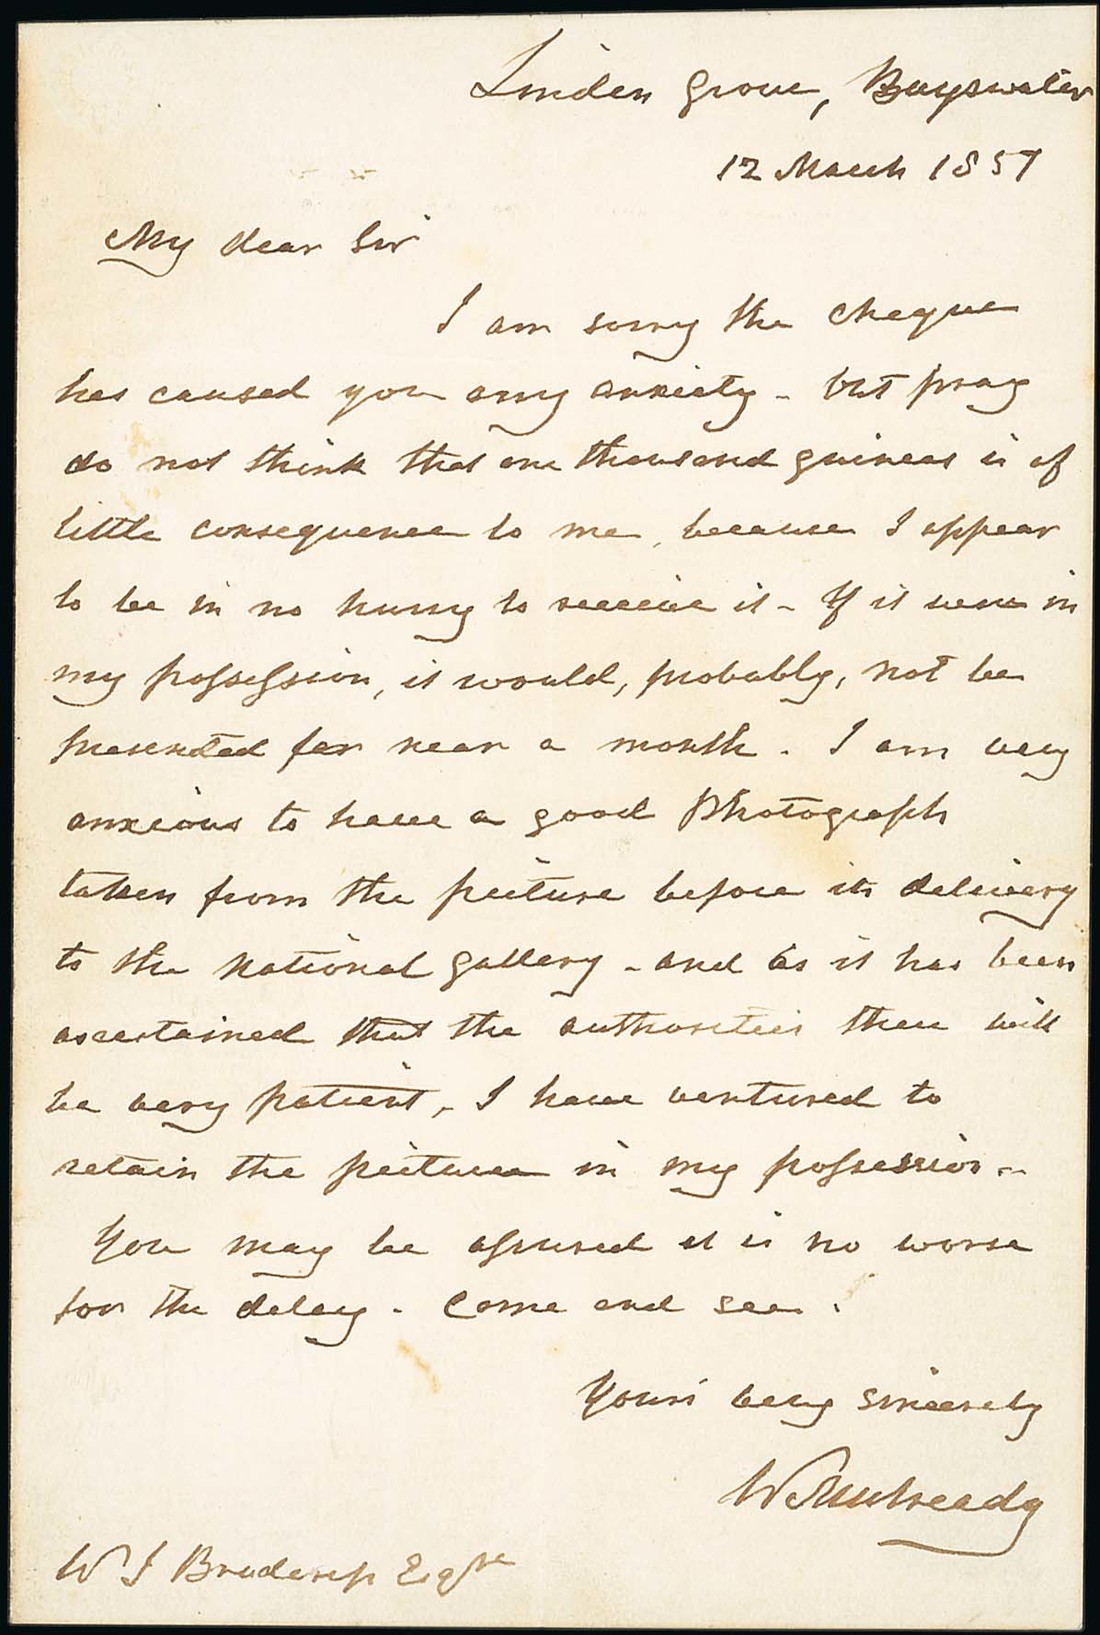 Linden Grove, Bayswater
12 March 1857
My dear Sir
I am sorry the cheque
has caused you any anxiety - but pray
do not think that one thousand guineas is of
little consequence to me, because I appear
to be in no hurry to receive it - If it were in
my possession, it would, probably, not be
presented for near a month. I am very
anxious to have a good Photograph
taken from the picture before its delivery
to the National Gallery - and as it has been
ascertained that the authorities there will
be very patient, I have ventured to
retain the picture in my possession -
You may be assured it is no worse
for the delay. Come and see.
Yours very sincerely
W Mulready
W J Broderip Esqre